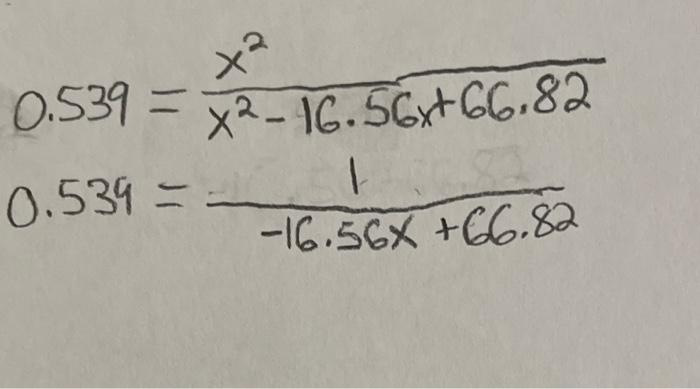 0.539 = x² / x² - 16.56x + 66.82
0.539 = 1 / -16.56x + 66.82